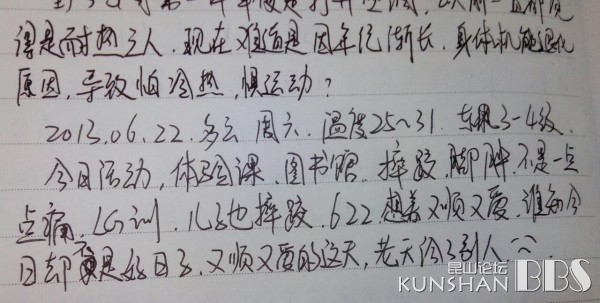 得是耐热之人.现在又难道是因年纪渐长,身体机能退化
原因,导致怕冷热,惧运动?
2013.06.22.多云 周六.温度25~31.东风3-4级.
今日活动,体验课.图书馆.摔跤,脚肿.不是一点
点痛,LG训.儿子也摔跤.622.想着又顺又爱.谁知今
日却不是好日子.又顺又爱的这天,老天给了别人
昆山论坛
KUNSHAN BBS